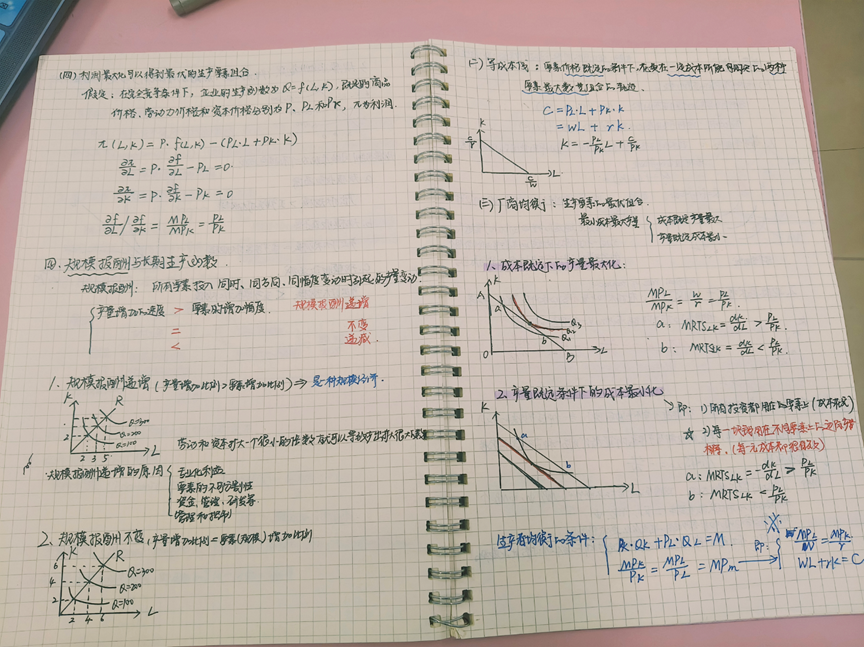 (四) 利润最大化可以得到最优的生产要素组合.
假定: 在完全竞争条件下, 企业的生产函数为 Q=f(L,K), 既定的商品
价格、劳动力价格和资本价格分别为 P、PL和PK, π为利润.
π(L,K) = P·f(L,K) - (PL·L+PK·K)
∂π/∂L = P·∂f/∂L - PL = 0
∂π/∂K = P·∂f/∂K - PK = 0
∂f/∂L / ∂f/∂K = MPL/MPK = PL/PK
四、规模报酬与长期生产函数.
规模报酬: 所有要素投入同时、同方向、同幅度变动时引起的产量变动.
产量增加的速度 > 要素的增加幅度. 规模报酬递增
= 不变
< 递减.
1、规模报酬递增 (产量增加比例>要素增加比例) ⇒ 是一种规模经济.
K
R
Q=300
Q=200
Q=100
2 3 5 L
劳动和资本扩大一个很小的倍数就可以导致产出扩大很大倍数
规模报酬递增的原因
专业化利益
要素的不可分割性
管理和控制
2、规模报酬不变 (产量增加比例=要素(规模)增加比例)
K
R
6
4
2
Q=300
Q=200
Q=100
2 4 6 L
(二) 等成本线: 要素价格既定的条件下, 花费在一定成本所能购买的两种
要素最大数量组合的轨迹.
C = PL·L + PK·K
= WL + rK
K = -PL/PK L + C/PK
K
C/r
C/w
L
(三) 厂商均衡: 生产要素的最优组合.
成本既定产量最大
产量既定成本最小.
1. 成本既定下的产量最大化:
K
A
a
b
Q3
Q2
Q1
O
B
L
MPL/MPK = w/r = PL/PK.
a: MRTSLK = dK/dL > PL/PK.
b: MRTSLK = dK/dL < PL/PK.
2. 产量既定条件下的成本最小化
K
a
b
L
即: 1) 所有投资都用在的要素上 (成本花完)
☆ 2) 每一块钱用在不同要素上的边际产量
相等.
a: MRTSLK = -dK/dL > PL/PK
b: MRTSLK < PL/PK
生产者均衡的条件:
PK·QK + PL·QL = M.
MPK/PK = MPL/PL = MPm
即:
MPL/W = MPK/r
WL+rK = C